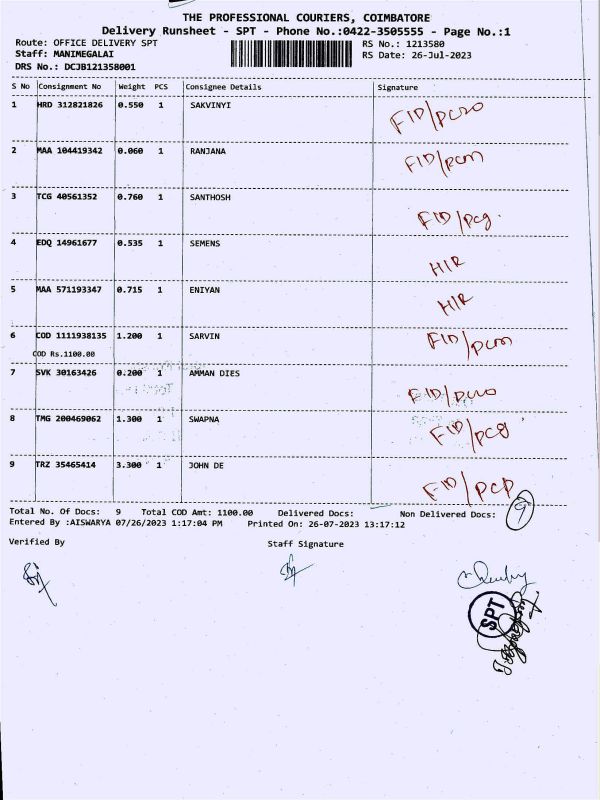 THE PROFESSIONAL COURIERS, COIMBATORE
Delivery Runsheet - SPT - Phone No.:0422-3505555 - Page No.:1
Route: OFFICE DELIVERY SPT RS No.: 1213580
Staff: MANIMEGALAI RS Date: 26-Jul-2023
DRS No.: DCJB121358001
S No Consignment No Weight PCS Consignee Details Signature
1 HRD 312821826 0.550 1 SAKVINYI FID/pczo
2 MAA 104419342 0.060 1 RANJANA FID/pcm
3 TCG 40561352 0.760 1 SANTHOSH FID/pcg.
4 EDQ 14961677 0.535 1 SEMENS HIR
5 MAA 571193347 0.715 1 ENIYAN HIR
6 COD 1111938135 1.200 1 SARVIN FID/pcm
COD Rs.1100.00
7 SVK 30163426 0.200 1 AMMAN DIES FID/
8 TMG 200469062 1.300 1 SWAPNA FID/pcg
9 TRZ 35465414 3.300 1 JOHN DE FID/pcp
Total No. Of Docs: 9 Total COD Amt: 1100.00 Delivered Docs: Non Delivered Docs: 9
Entered By :AISWARYA 07/26/2023 1:17:04 PM Printed On: 26-07-2023 13:17:12
Verified By Staff Signature
SPT